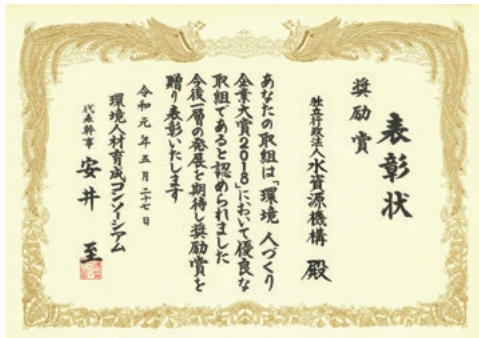 表彰状
奨励賞
独立行政法人水資源機構 殿
あなたの取組は「環境 人づくり
企業大賞2018」において優良な
取組であると認められました
今後一層の発展を期待し奨励賞を
贈り表彰いたします
令和元年五月二十七日
環境人材育成コンソーシアム
代表幹事 安井 至